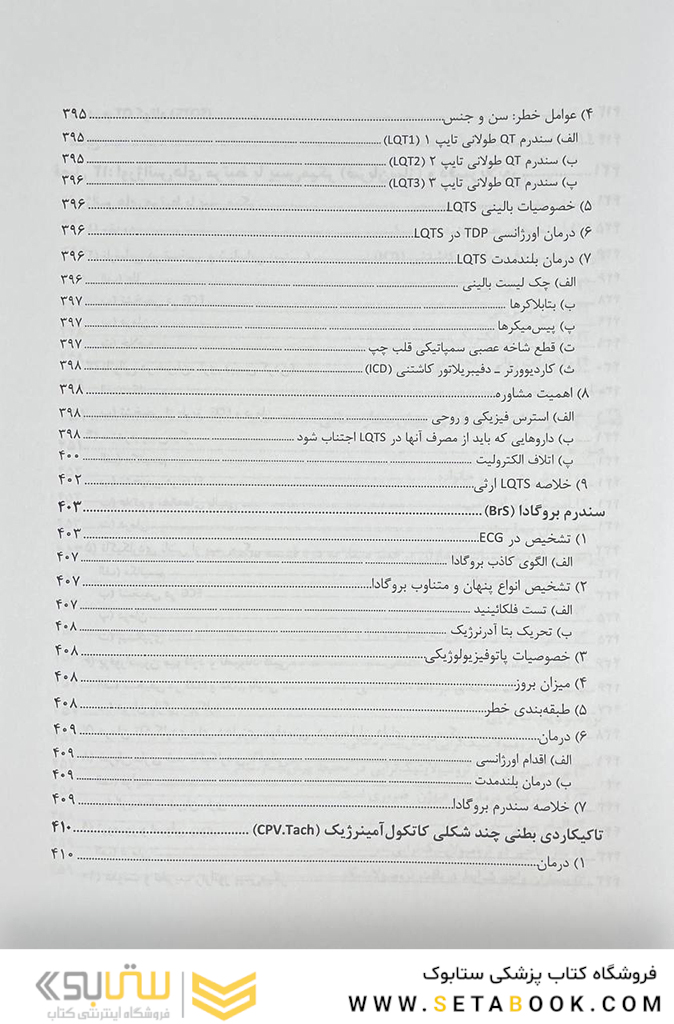 ۴) عوامل خطر: سن و جنس ........ ۳۹۵
الف) سندرم QT طولانی تایپ ۱ (LQT1) ........ ۳۹۵
ب) سندرم QT طولانی تایپ ۲ (LQT2) ........ ۳۹۵
پ) سندرم QT طولانی تایپ ۳ (LQT3) ........ ۳۹۶
۵) خصوصیات بالینی LQTS ........ ۳۹۶
۶) درمان اورژانسی TDP در LQTS ........ ۳۹۶
۷) درمان بلندمدت LQTS ........ ۳۹۶
الف) چک لیست بالینی ........ ۳۹۶
ب) بتابلاکرها ........ ۳۹۷
پ) پیس‌میکرها ........ ۳۹۷
ت) قطع شاخه عصبی سمپاتیکی قلب چپ ........ ۳۹۷
ث) کاردیوورتر ـ دفیبریلاتور کاشتنی (ICD) ........ ۳۹۸
۸) اهمیت مشاوره ........ ۳۹۸
الف) استرس فیزیکی و روحی ........ ۳۹۸
ب) داروهایی که باید از مصرف آنها در LQTS اجتناب شود ........ ۳۹۸
پ) اتلاف الکترولیت ........ ۴۰۰
۹) خلاصه LQTS ارثی ........ ۴۰۲
سندرم بروگادا (BrS) ........ ۴۰۳
۱) تشخیص در ECG ........ ۴۰۳
الف) الگوی کاذب بروگادا ........ ۴۰۷
۲) تشخیص انواع پنهان و متناوب بروگادا ........ ۴۰۷
الف) تست فلکائینید ........ ۴۰۷
ب) تحریک بتا آدرنرژیک ........ ۴۰۸
۳) خصوصیات پاتوفیزیولوژیکی ........ ۴۰۸
۴) میزان بروز ........ ۴۰۸
۵) طبقه‌بندی خطر ........ ۴۰۸
۶) درمان ........ ۴۰۹
الف) اقدام اورژانسی ........ ۴۰۹
ب) درمان بلندمدت ........ ۴۰۹
۷) خلاصه سندرم بروگادا ........ ۴۰۹
تاکیکاردی بطنی چند شکلی کاتکول‌آمینرژیک (CPV.Tach) ........ ۴۱۰
۱) درمان ........ ۴۱۰
فروشگاه کتاب پزشکی ستابوک
WWW.SETABOOK.COM
ستابوک
فروشگاه اینترنتی کتاب